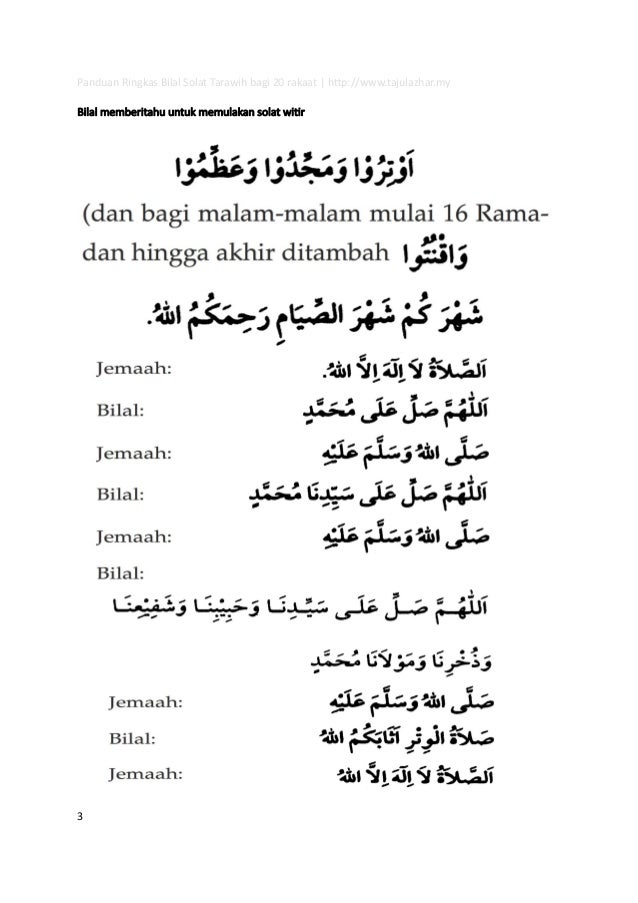 Panduan Ringkas Bilal Solat Tarawih bagi 20 rakaat | http://www.tajulazhar.my
Bilal memberitahu untuk memulakan solat witir
اَوْتِرُوْا وَمَجِّدُوْا وَعَظِّمُوْا
(dan bagi malam-malam mulai 16 Rama-
dan hingga akhir ditambah وَاقْنُتُوا
شَهْرَ كُمْ شَهْرَ الصِّيَامِ رَحِمَكُمُ اللهُ.
Jemaah: اَلصَّلاَةُ لاَ اِلَهَ اِلاَّ اللهُ.
Bilal: اَللّٰهُمَّ صَلِّ عَلَى مُحَمَّدٍ
Jemaah: صَلَّى اللهُ وَسَلَّمَ عَلَيْهِ
Bilal: اَللّٰهُمَّ صَلِّ عَلَى سَيِّدِنَا مُحَمَّدٍ
Jemaah: صَلَّى اللهُ وَسَلَّمَ عَلَيْهِ
Bilal:
اَللّٰهُمَّ صَلِّ عَلَى سَيِّدِنَا وَحَبِيْبِنَا وَشَفِيْعِنَا
وَذُخْرِنَا وَمَوْلاَنَا مُحَمَّدٍ
Jemaah: صَلَّى اللهُ وَسَلَّمَ عَلَيْهِ
Bilal: صَلاَةُ الْوِتْرِ اَثَابَكُمُ اللهُ
Jemaah: اَلصَّلاَةُ لاَ اِلَهَ اِلاَّ اللهُ
3